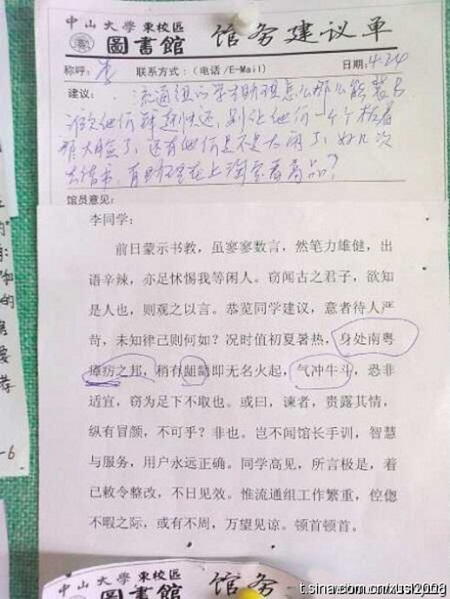 中山大學東校區
圖書館 馆务建议单
称呼：李 联系方式：（电话/E-Mail） 日期：4.24
建议： 流通组的学生助理怎么那么能装B
大脸了，还有他们是不是太闲了，好几次
去借书，有助理在上淘宝看商品？
馆员意见：
李同学：
前日蒙示书教，虽寥寥数言，然笔力雄健，出
语辛辣，亦足怵惕我等闲人。窃闻古之君子，欲知
是人也，则观之以言。恭览同学建议，意者待人严
苛，未知律己则何如？况时值初夏暑热，身处南粤
瘴疠之邦，稍有龃龉即无名火起，气冲牛斗，恐非
适宜，窃为足下不取也。或曰，谏者，贵露其情，
纵有冒颜，不可乎？非也。岂不闻馆长手训，智慧
与服务，用户永远正确。同学高见，所言极是，着
已敕令整改，不日见效。惟流通组工作繁重，倥偬
不暇之际，或有不周，万望见谅。顿首顿首。
中山大學東校區
馆务